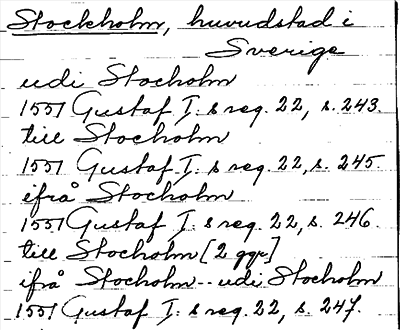 Stockholm, huvudstad i
Sverige
udi Stocholm
1551 Gustaf I:s reg. 22, s. 243.
till Stocholm
1551 Gustaf I:s reg. 22, s. 245.
ifrå Stocholm
1551 Gustaf I:s reg. 22, s. 246.
till Stocholm [2 ggr]
ifrå Stocholm -- udi Stocholm
1551 Gustaf I:s reg. 22, s. 247.